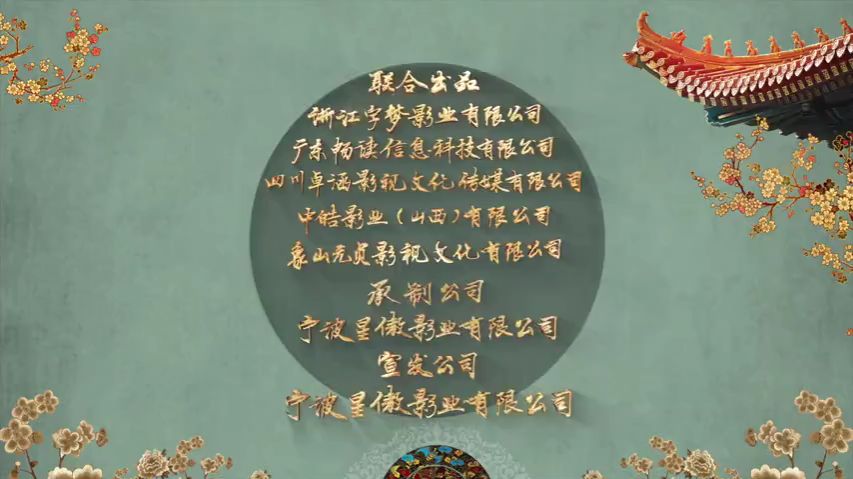 联合出品
浙江字梦影业有限公司
广东畅读信息科技有限公司
四川卓涵影视文化传媒有限公司
中皓影业(山西)有限公司
象山元贞影视文化有限公司
承制公司
宁波星傲影业有限公司
宣发公司
宁波星傲影业有限公司